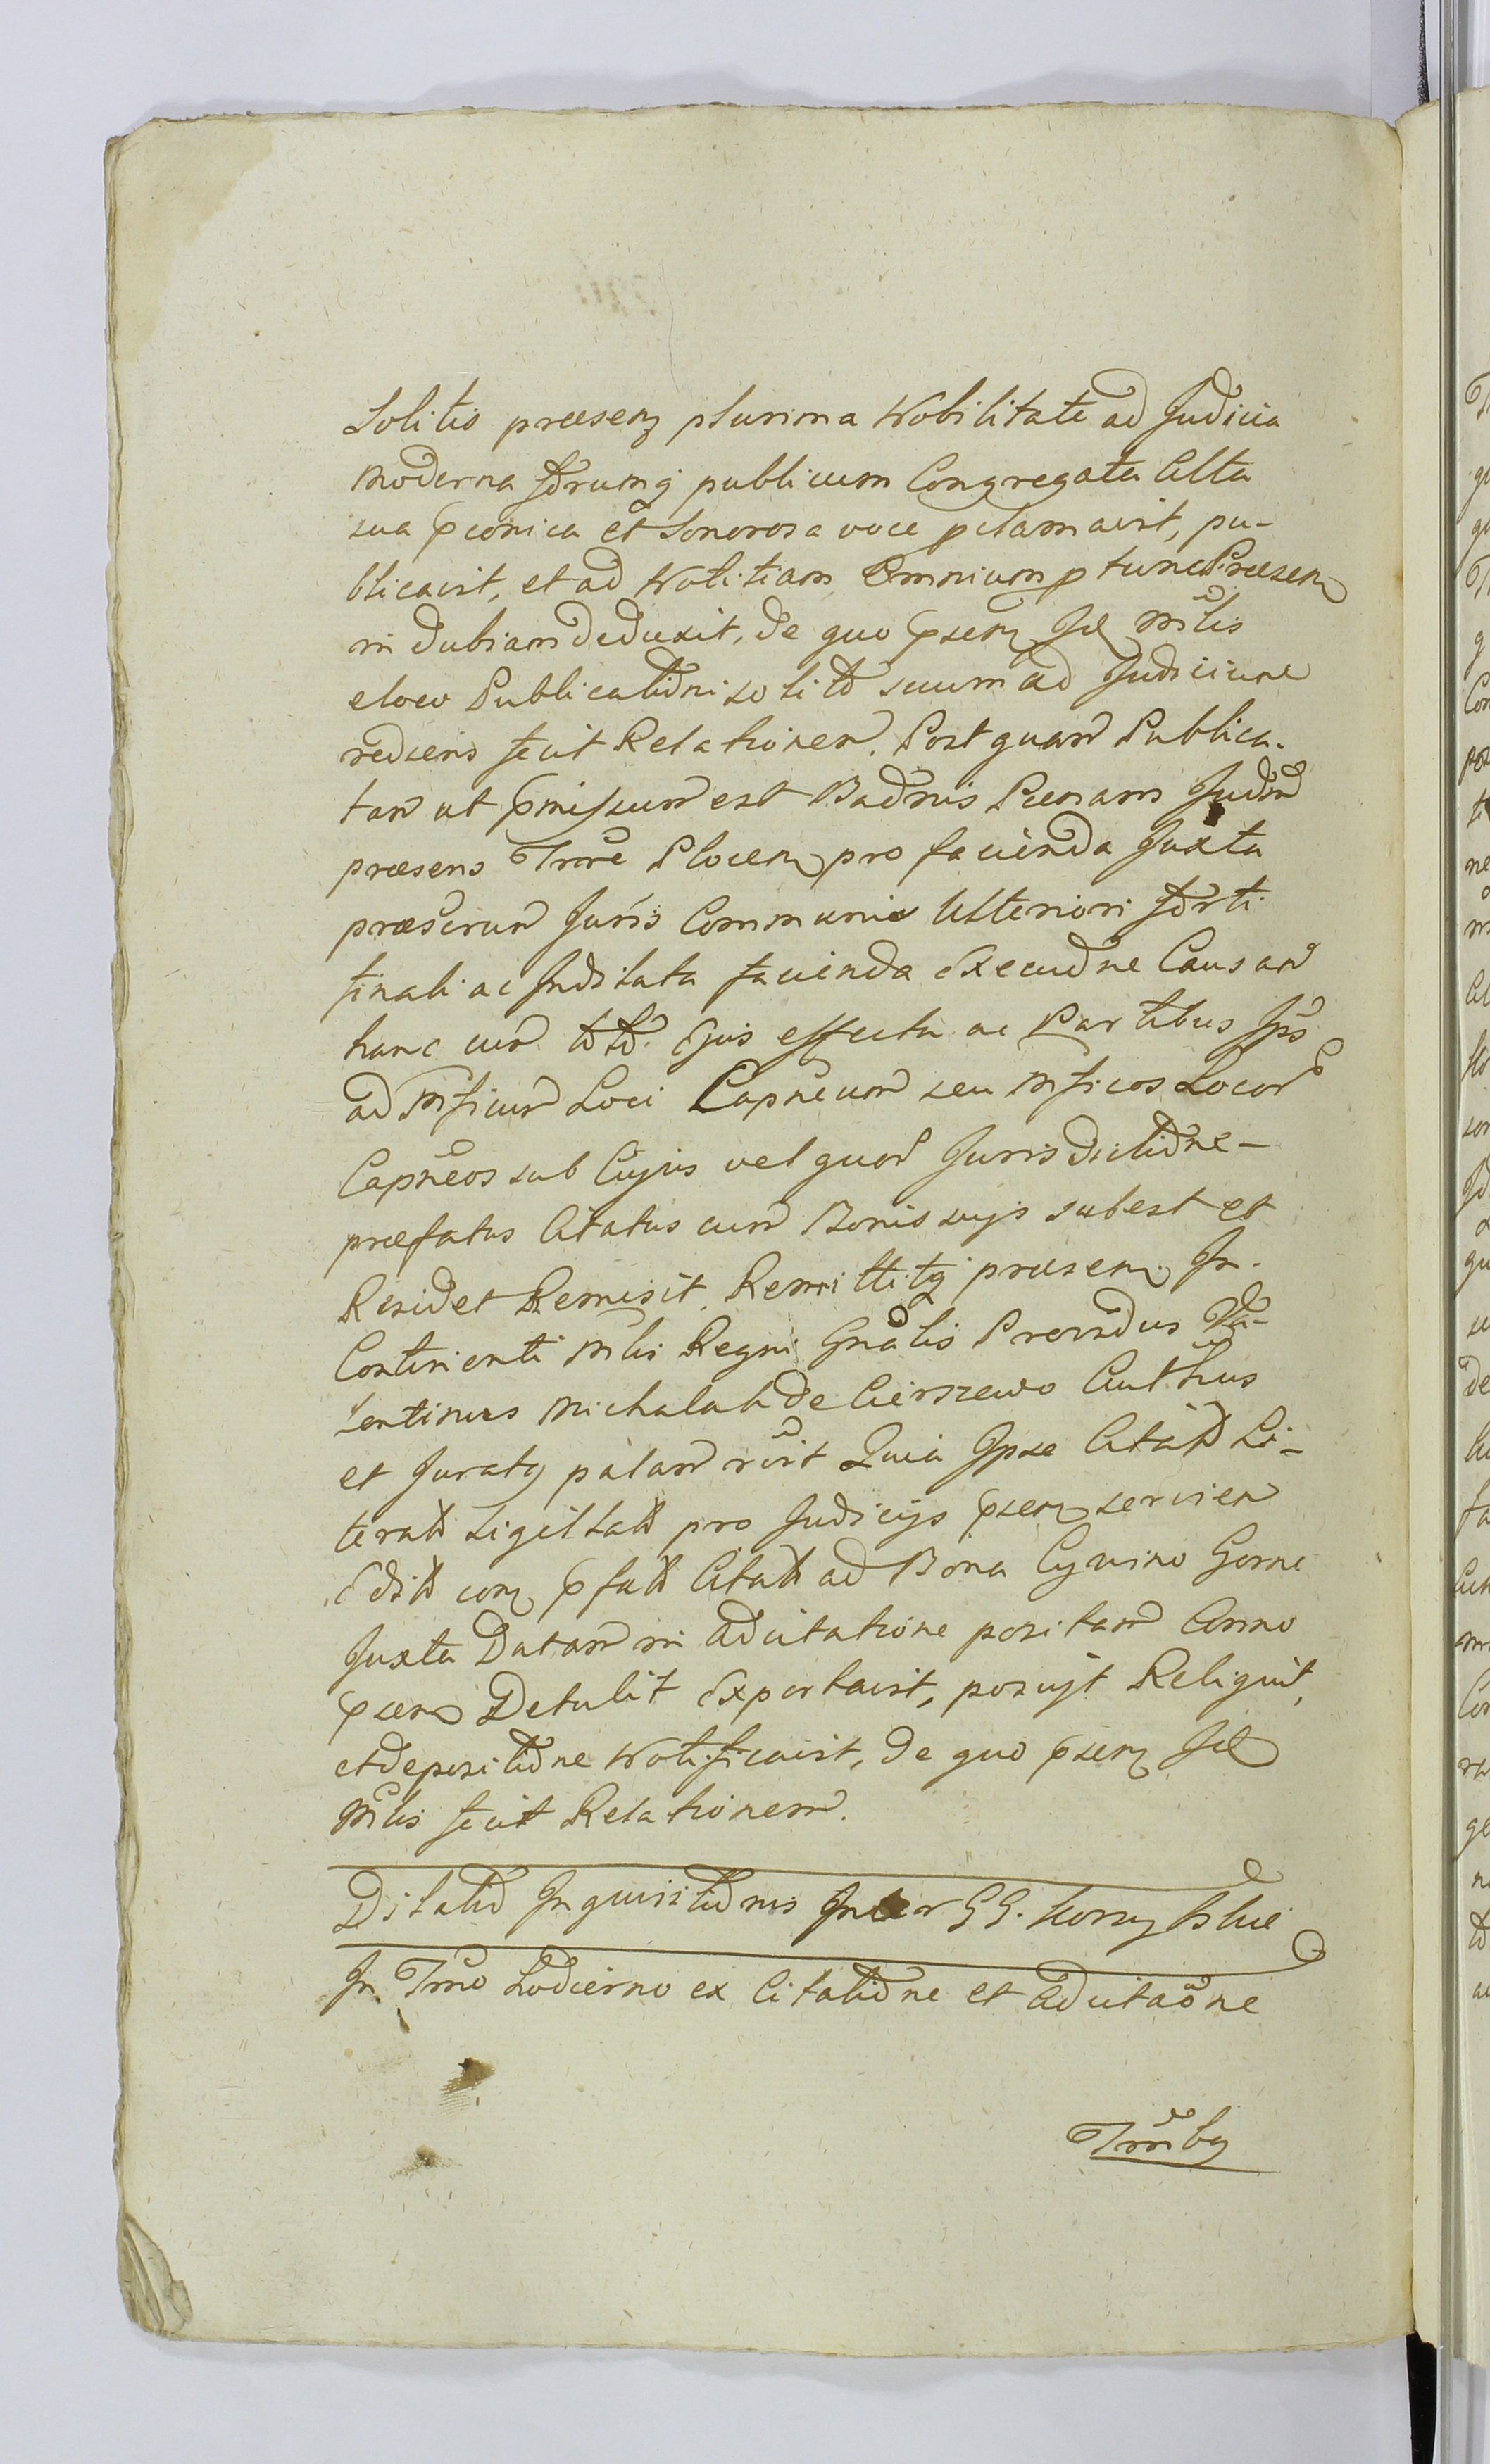 Solitis præsenz plurima Nobilitate ad Judicia
moderna forumq publicum Congregata Alta
sua præconica et Sonorosa voce pclamavit, pu-
blicavit, et ad Notitiam Omnium p tunc Præsenz
in dubiam deduxit, de quo psenz Jd Mtlis
e loco Publicationi solito suum ad Judicium
rediens fecit Relationem. Post quam Publica-
tam ut pmissum est Badnis Pænam Judm
præsens Trnre Plocenz pro facienda Juxta
præscrum Juris Communis Ulteriori forti
finali ac Inditata facienda Execudne Causam
hanc cum toto Ejus effectu ac Partibus Jps
ad Mficum Loci Capneum seu Mficos Locor
Capneos sub Cujus vel quor Jurisdictidne-
præfatus Citatus cum Bonis suys subest et
Residet Remisit, Remittitq præsenz. In-
Continenti Mtlis Regni Gnalis Providus Va-
lentinus Michalak de Cierszewo Authus
et Juratq palam rcvit Quia Ipse Citatt Li-
teratt Sigillatt pro Judicijs psenz servien
Editt conz pfatt Citatt ad Bona Cywino Gorne
Juxta Datam in adcitatione positam Anno
psens Detulit Exportavit, posuyt Reliquit,
et depositidne Notificavit, de quo psenz Jd
Mtlis fecit Relationem.
Dilatid Inquisitidnis Inter GG.
In Trno hodierno ex Citatidne et adcitaone
Trnibq